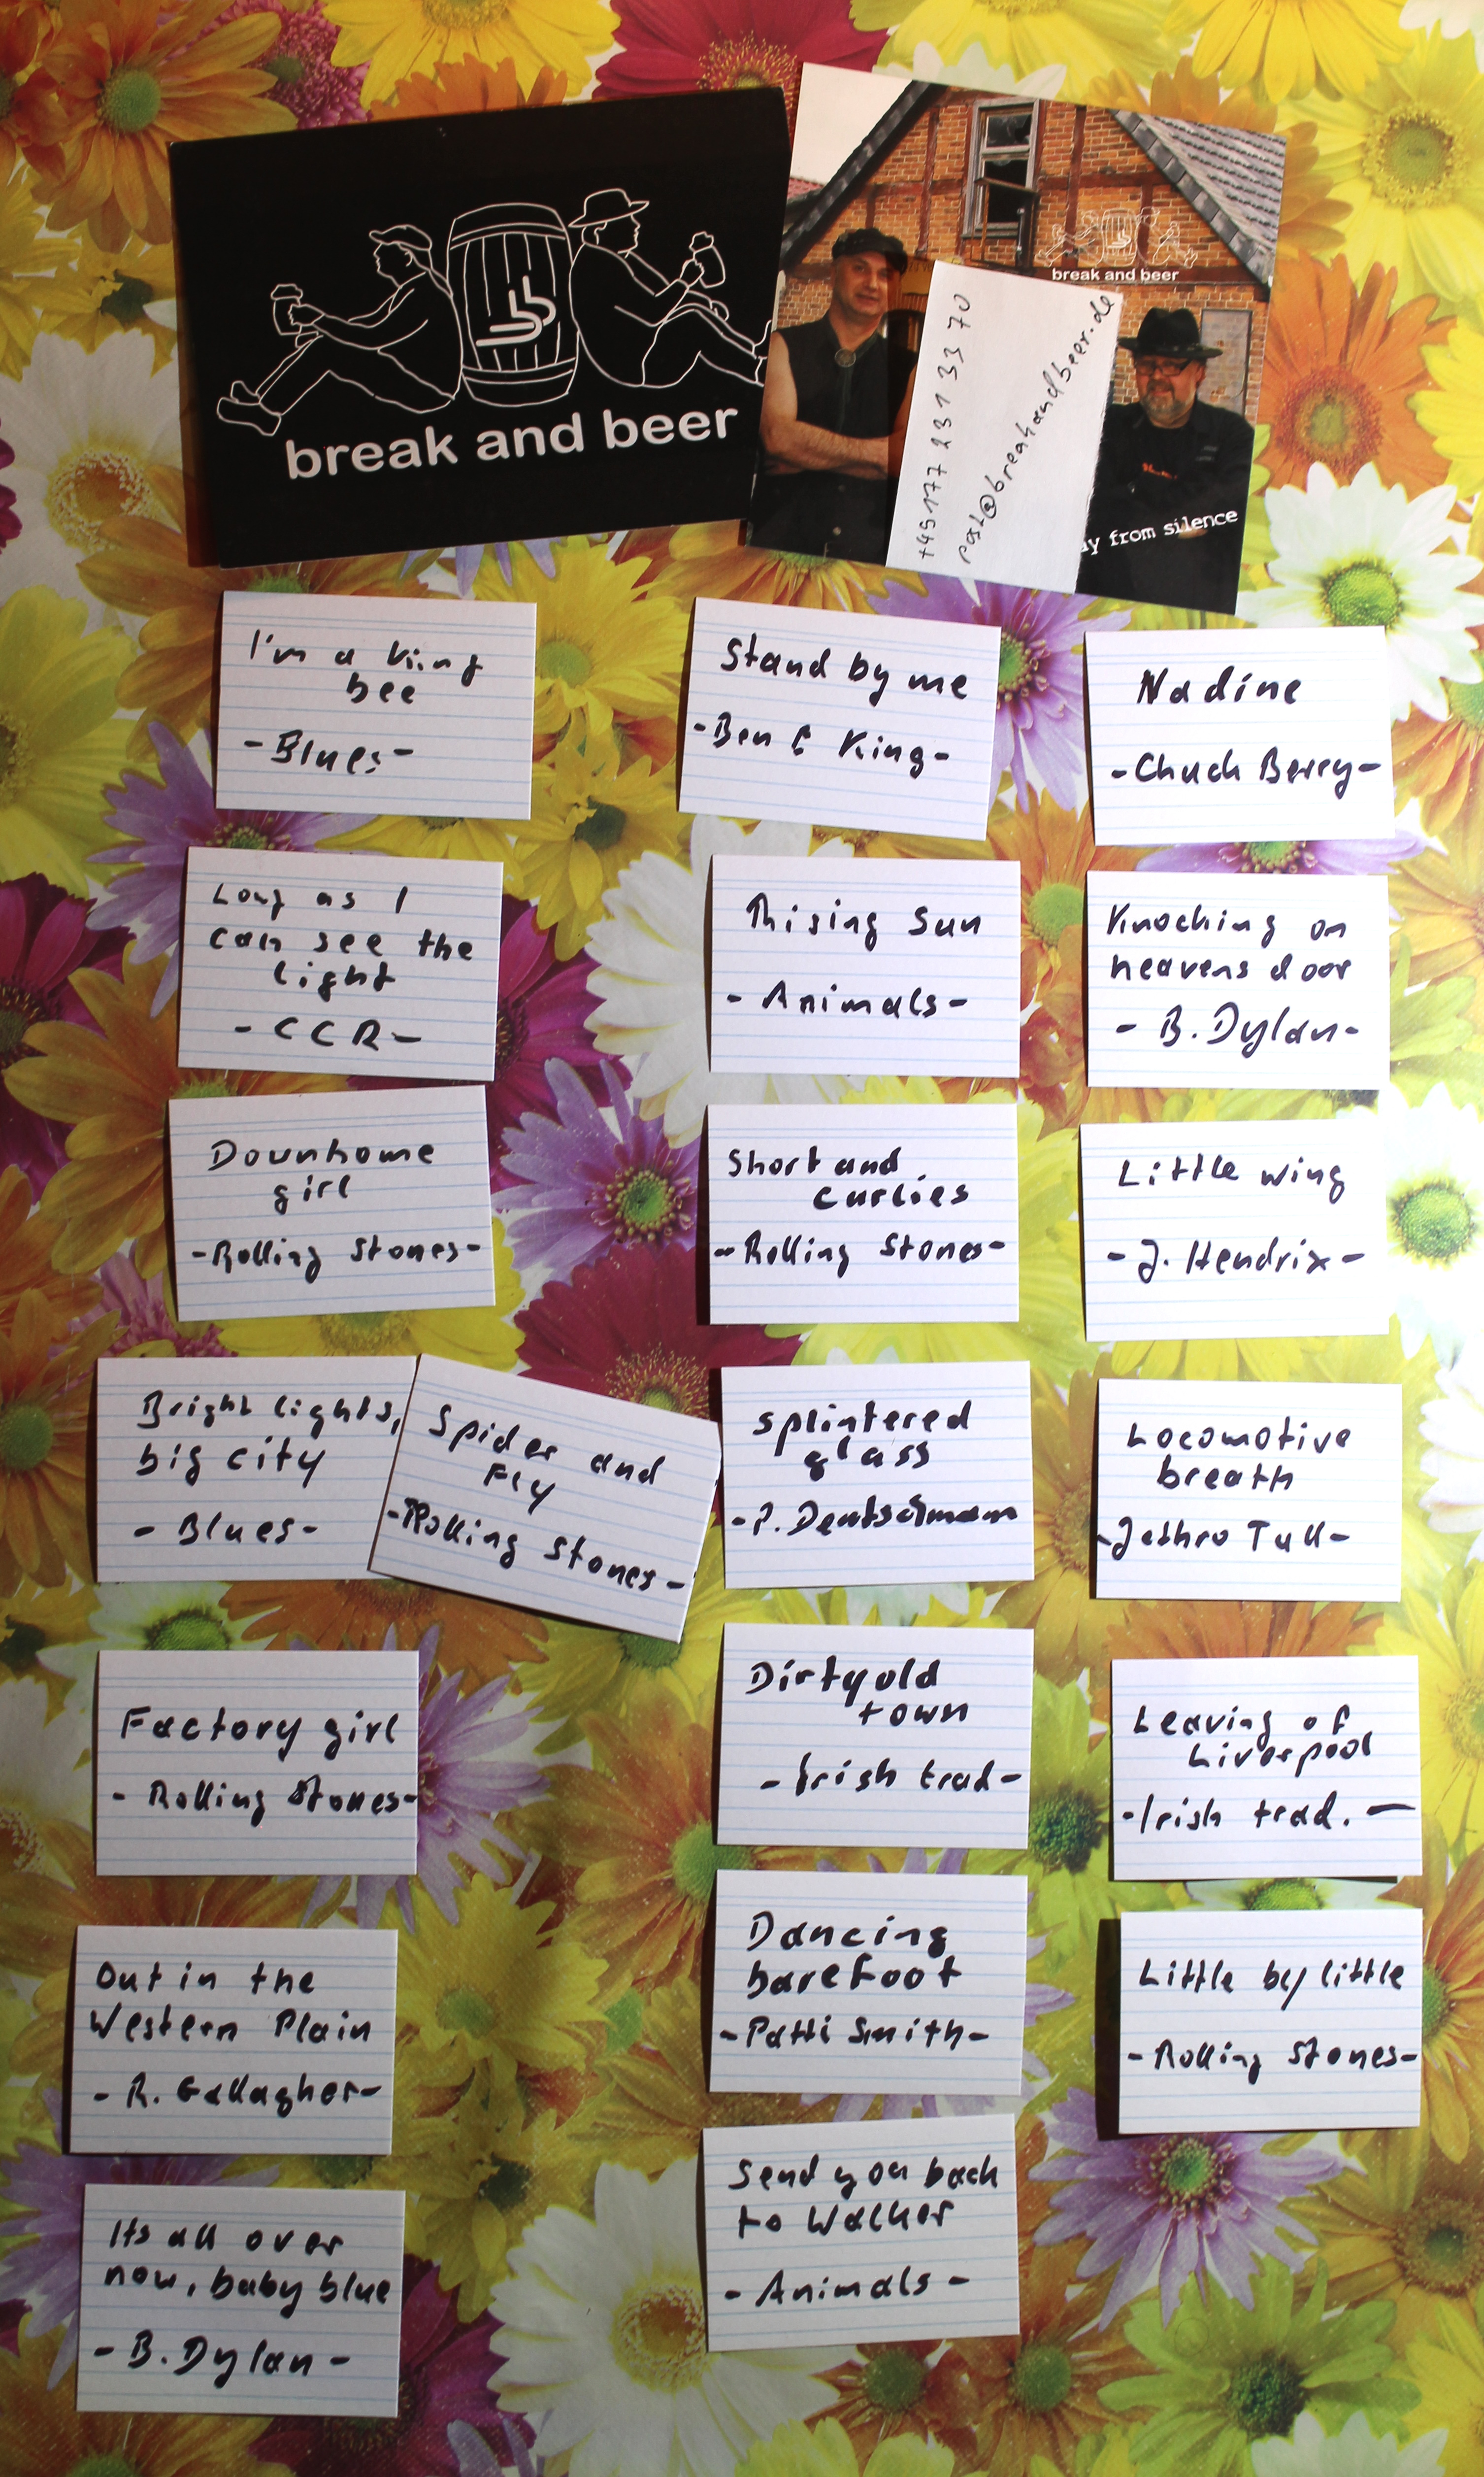 break and beer
break and beer
+49 177 231 33 70
post@breakandbeer.de
ay from silence
I'm a king
bee
-Blues-
Long as I
can see the
light
- CCR -
Downhome
girl
-Rolling Stones-
Bright lights,
big city
- Blues-
Spider and
Fly
-Rolling Stones-
Factory girl
- Rolling Stones-
Out in the
Western Plain
- R. Gallagher-
Its all over
now, baby blue
- B. Dylan -
Stand by me
-Ben E King-
Rising Sun
- Animals-
Short and
curlies
-Rolling Stones-
splintered
glass
-P. Deutschmann
Dirty old
town
- Irish trad-
Dancing
barefoot
-Patti Smith-
Send you back
to Walker
- Animals -
Nadine
-Chuck Berry-
Knocking on
heavens door
- B. Dylan-
Little wing
-J. Hendrix-
Locomotive
breath
-Jethro Tull-
Leaving of
Liverpool
-Irish trad. -
Little by little
-Rolling Stones-